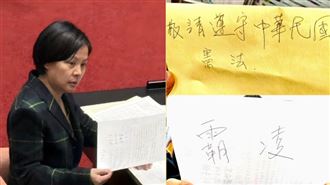 敬請遵守中華民國
憲法.
霸凌